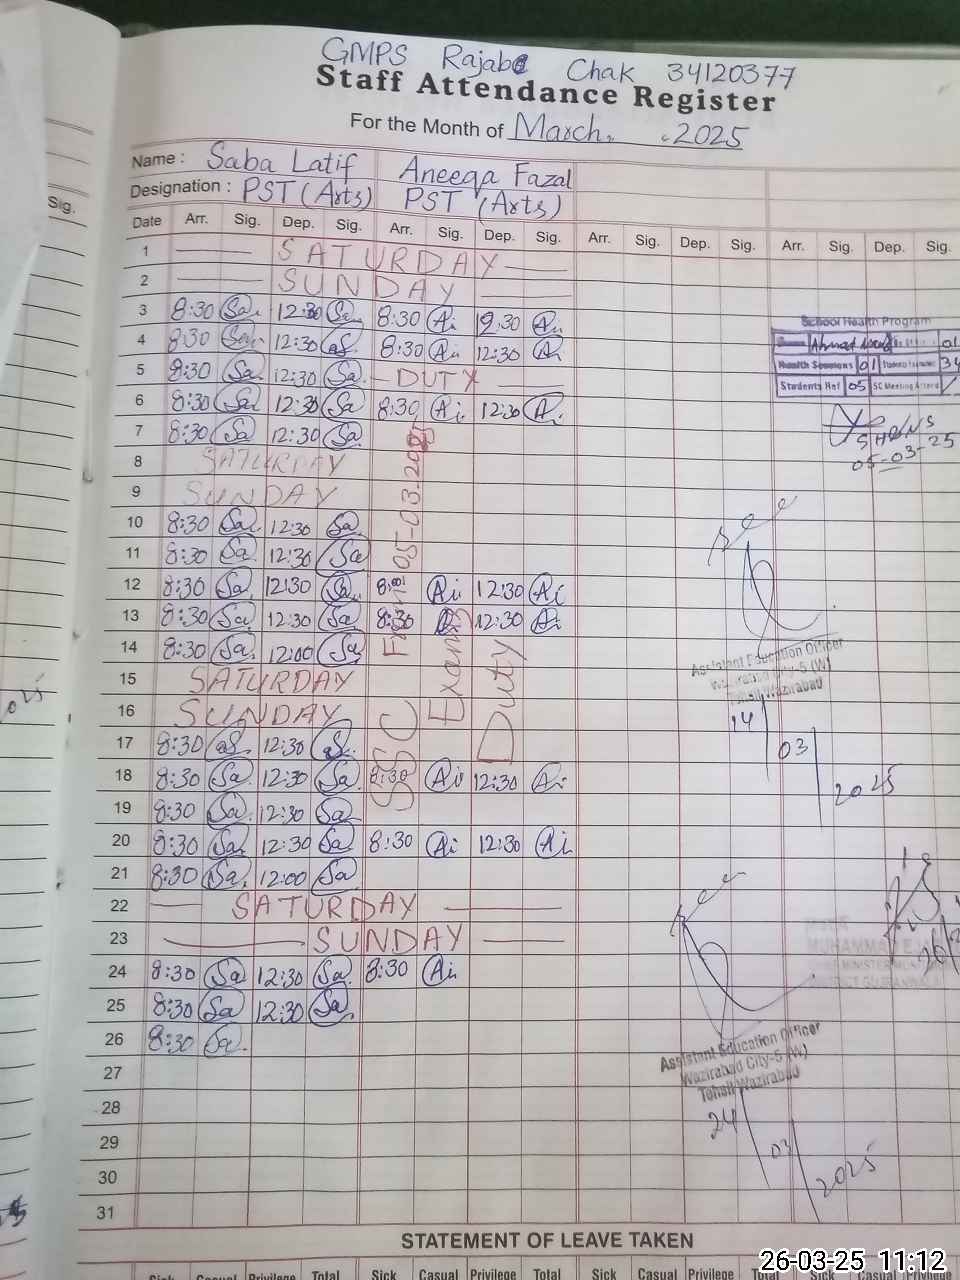 GMPS Rajab Chak 34120377
Staff Attendance Register
For the Month of March. 2025
Name : Saba Latif Aneeqa Fazal
Designation : PST (Arts) PST (Arts)
Sig.
Date Arr. Sig. Dep. Sig. Arr. Sig. Dep. Sig. Arr. Sig. Dep. Sig. Arr. Sig. Dep. Sig.
1 SATURDAY
2 SUNDAY
3 8:30 Sa 12:30 Sa 8:30 Ai 12:30 Ai
4 8:30 Sa 12:30 aS 8:30 Ai 12:30 A
5 8:30 Sa 12:30 Sa DUTY
6 8:30 Sa 12:30 Sa 8:30 Ai 12:30 A.
7 8:30 Sa 12:30 Sa
8 SATURDAY
9 SUNDAY
10 8:30 Sa 12:30 Sa
11 8:30 Sa 12:30 Sa
12 8:30 Sa 12:30 Sa Ai 12:30 Ai
13 8:30 Sa 12:30 Sa 8:30 12:30 Ai
14 8:30 Sa 12:00 Sa
15 SATURDAY
16 SUNDAY
17 8:30 aS 12:30 aS
18 8:30 Sa 12:30 Sa 8:30 Ai 12:30 Ai
19 8:30 Sa 12:30 Sa
20 8:30 Sa 12:30 Sa 8:30 Ai 12:30 Ai
21 8:30 Sa 12:00 Sa
22 SATURDAY
23 SUNDAY
24 8:30 Sa 12:30 Sa 8:30 Ai
25 8:30 Sa 12:30 Sa
26 8:30 Sa
27
28
29
30
31
SSC From 05-03-2025
Exams
Duty
School Health Program
Ahmat 01
Health Sessions 01 34
Students Ref 05 SC Meeting Attend
SH&NS
05-03-25
Assistant Education Officer
Wazirabad City-5 (W)
Tehsil Wazirabad
14 03 2025
MUHAMMAD
CHIEF MINISTER
DISTRICT GUJRANWALA
Assistant Education Officer
Wazirabad City-5 (W)
Tehsil Wazirabad
24 03 2025
STATEMENT OF LEAVE TAKEN
Sick Casual Privilege Total Sick Casual Privilege Total Sick Casual Privilege Total Sick Casual Privilege
26-03-25 11:12